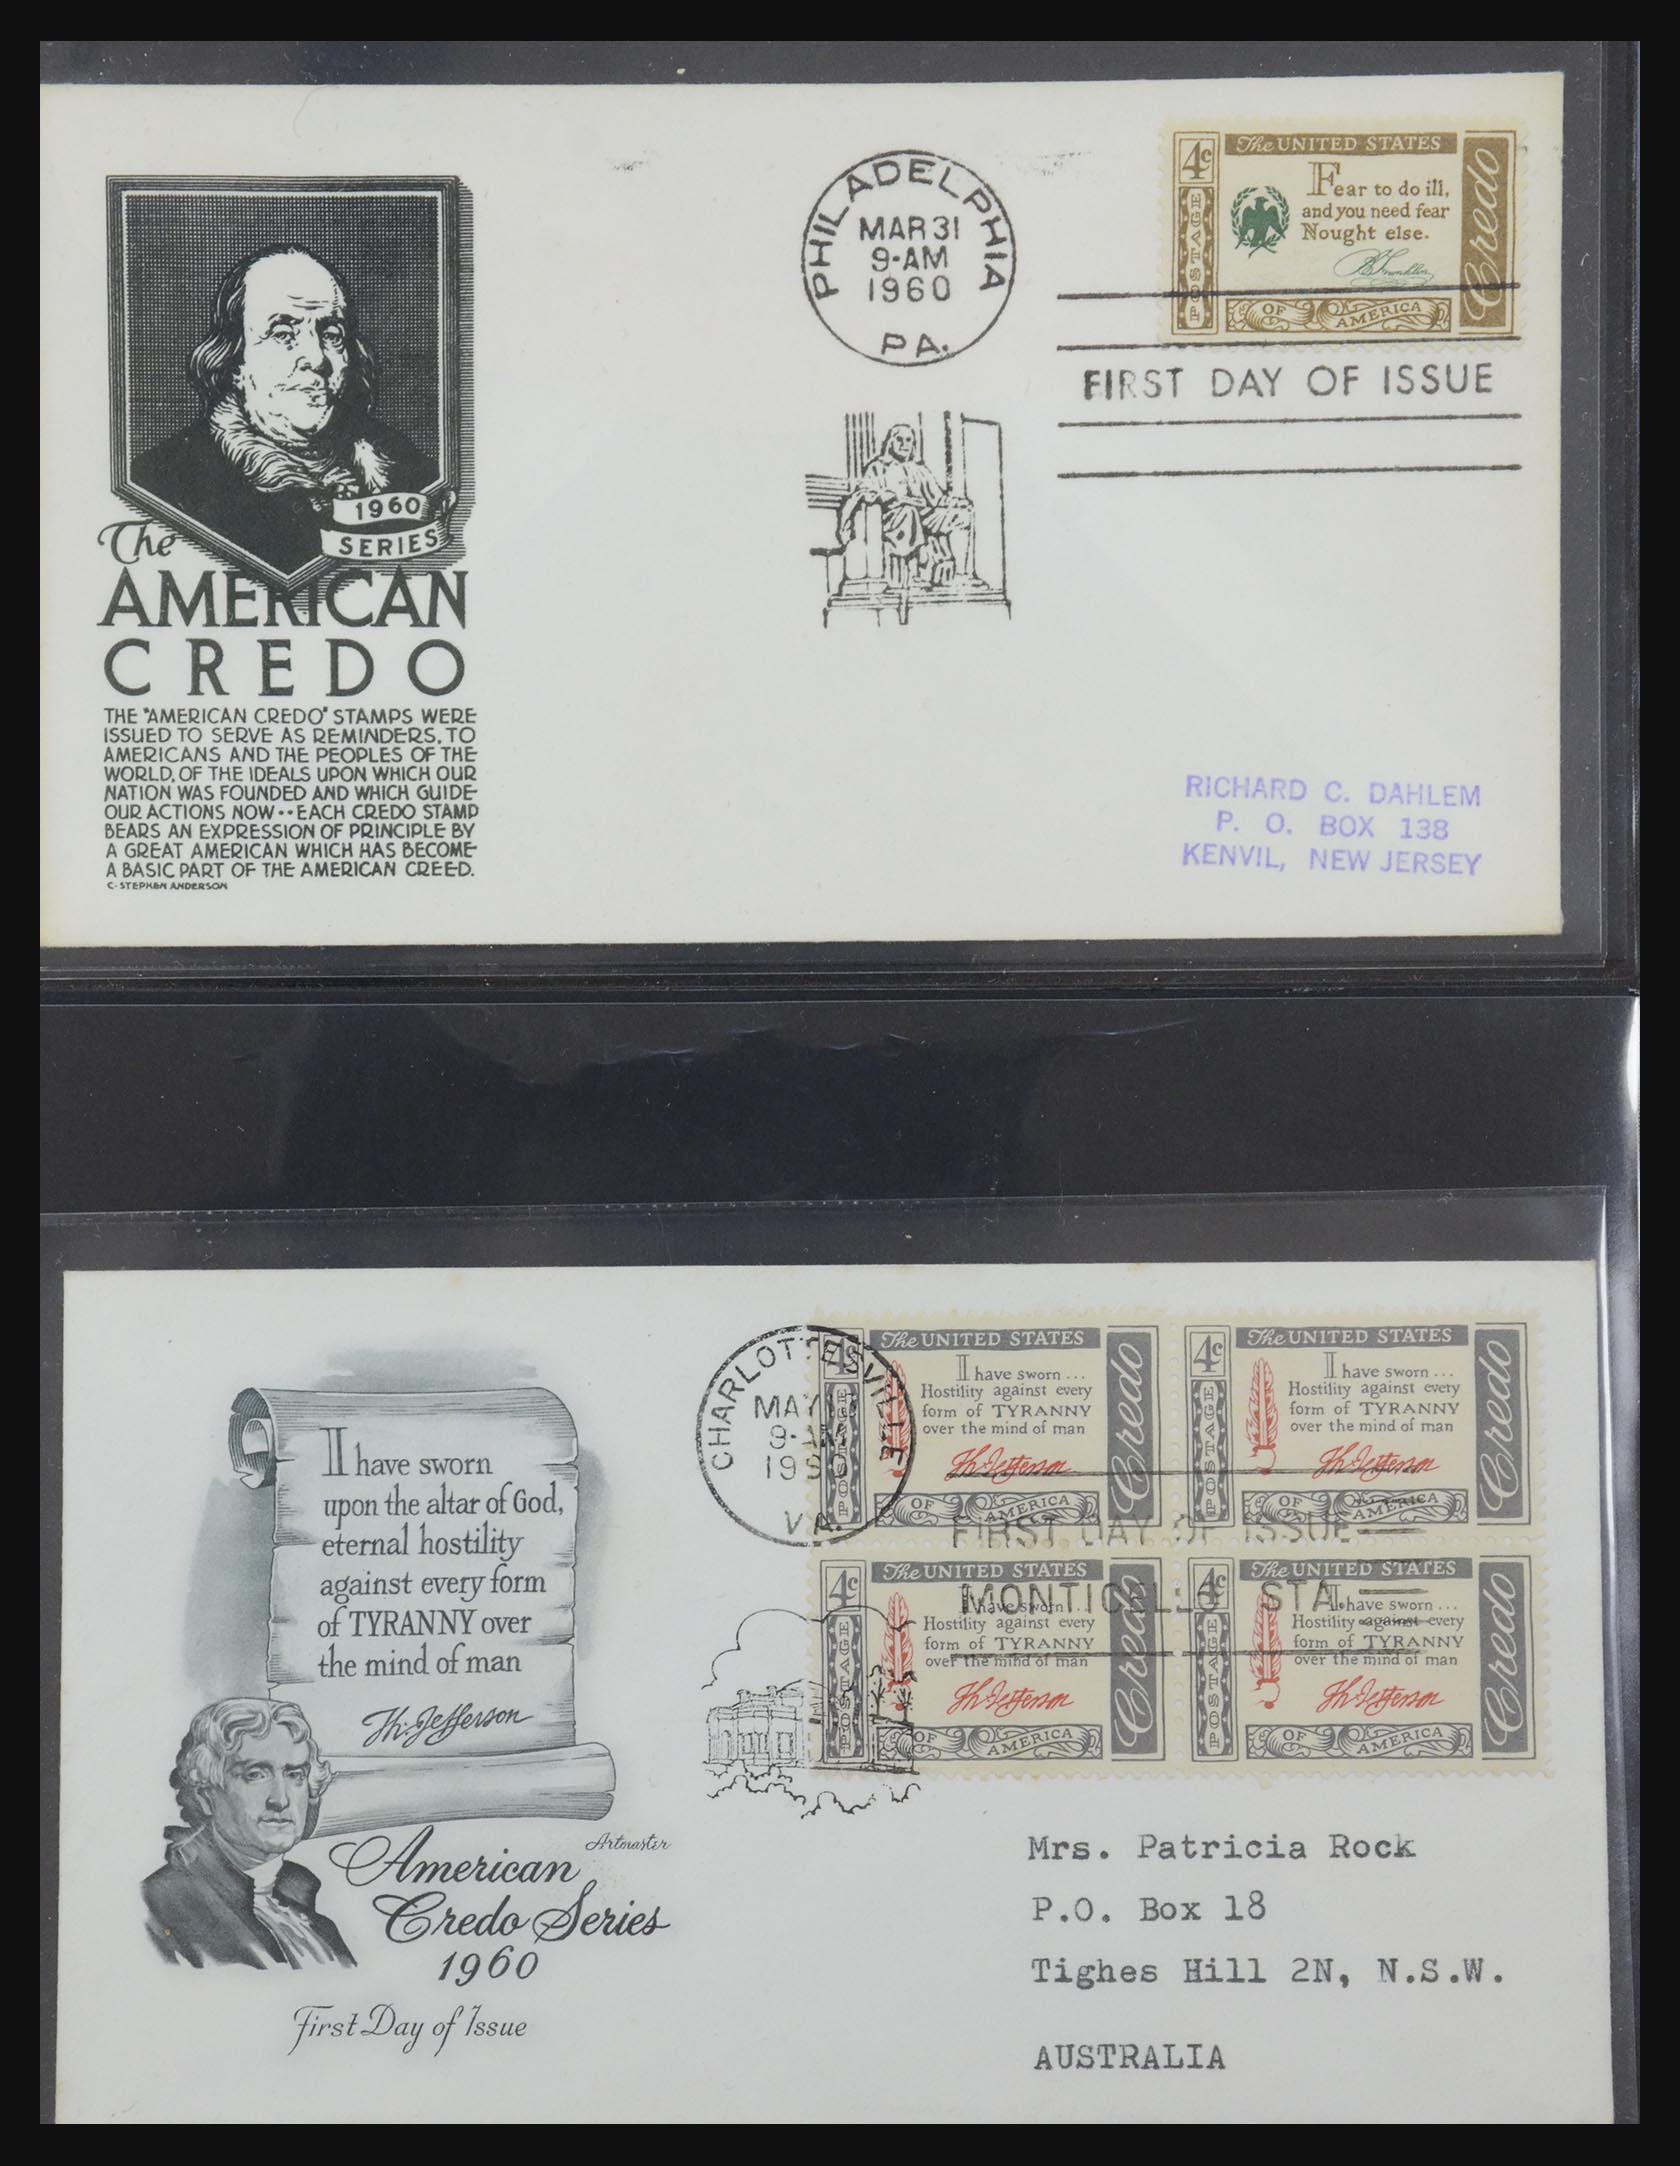 PHILADELPHIA
MAR 31
9-AM
1960
PA.
4c
The UNITED STATES
POSTAGE
Fear to do ill,
and you need fear
Nought else.
B Franklin
Credo
OF AMERICA
FIRST DAY OF ISSUE
1960
SERIES
The
AMERICAN
CREDO
THE "AMERICAN CREDO" STAMPS WERE
ISSUED TO SERVE AS REMINDERS, TO
AMERICANS AND THE PEOPLES OF THE
WORLD, OF THE IDEALS UPON WHICH OUR
NATION WAS FOUNDED AND WHICH GUIDE
OUR ACTIONS NOW--EACH CREDO STAMP
BEARS AN EXPRESSION OF PRINCIPLE BY
A GREAT AMERICAN WHICH HAS BECOME
A BASIC PART OF THE AMERICAN CREED.
C. STEPHEN ANDERSON
RICHARD C. DAHLEM
P. O. BOX 138
KENVIL, NEW JERSEY
I have sworn
upon the altar of God,
eternal hostility
against every form
of TYRANNY over
the mind of man
Th: Jefferson
Artmaster
American
Credo Series
1960
First Day of Issue
CHARLOTTESVILLE
MAY
9-AM
1960
VA.
4c
The UNITED STATES
POSTAGE
I have sworn...
Hostility against every
form of TYRANNY
over the mind of man
Th: Jefferson
Credo
OF AMERICA
4c
The UNITED STATES
POSTAGE
I have sworn...
Hostility against every
form of TYRANNY
over the mind of man
Th: Jefferson
Credo
OF AMERICA
FIRST DAY OF ISSUE
MONTICELLO STA.
4c
The UNITED STATES
POSTAGE
I have sworn...
Hostility against every
form of TYRANNY
over the mind of man
Th: Jefferson
Credo
OF AMERICA
4c
The UNITED STATES
POSTAGE
I have sworn...
Hostility against every
form of TYRANNY
over the mind of man
Th: Jefferson
Credo
OF AMERICA
Mrs. Patricia Rock
P.O. Box 18
Tighes Hill 2N, N.S.W.
AUSTRALIA